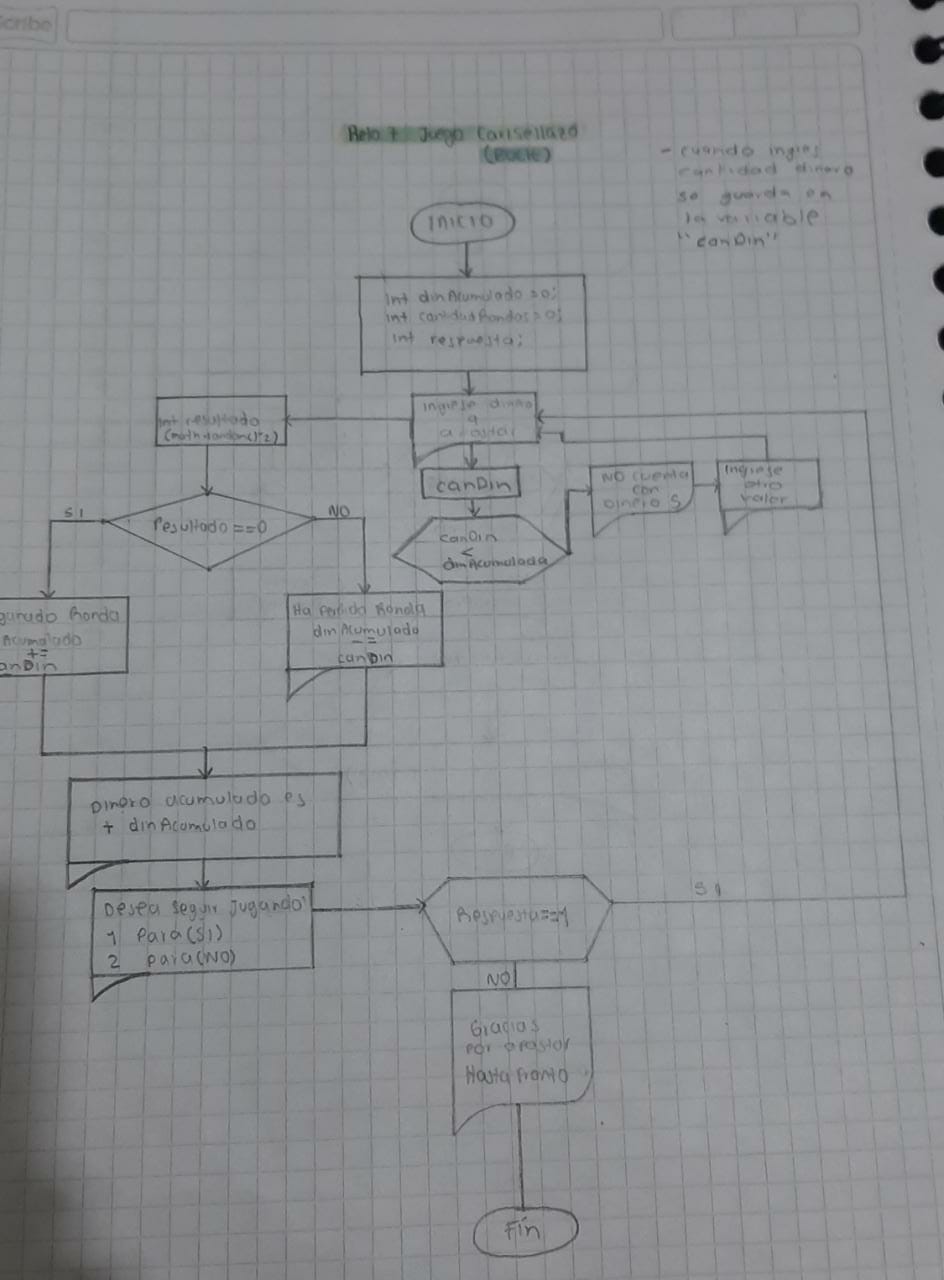 cribe
Reto 7 Juego Carisellazo
(BUCLE)
- cuando ingres
cantidad dinero
se guarda en
la variable
"canDin"
INICIO
Int dinAcumulado =0;
Int cantidadRondas=0;
Int respuesta;
Ingrese dinero
a
apostar
Int resultado
(math.random()*2)
canDin
NO cuenta
con
dinero $
Ingrese
otro
valor
Resultado ==0
SI
NO
canDin
<
dinAcumulada
ganado Ronda
Acumulado
+=
anDin
Ha perdido Ronda
dinAcumulado
-=
canDin
Dinero acumulado es
+ dinAcumulado
Desea seguir jugando
1 para(SI)
2 para(NO)
Respuesta==1
SI
NO
Gracias
por apostar
Hasta Pronto
Fin